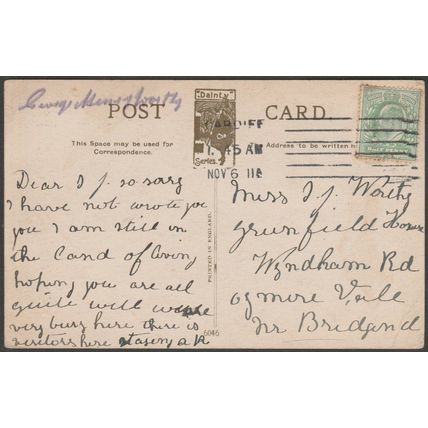 POST
CARD.
Dainty
Series.
This Space may be used for
Correspondence.
Address to be written
CARDIFF
45 AM
NOV 6 11
PRINTED IN ENGLAND.
6046
Dear I J. so sorry
I have not wrote you
you I am still in
the Land of living
hoping you are all
quite well
very busy here there is
visitors here
Miss I J. Worthy
Greenfield House
Wyndham Rd
Ogmore Vale
Nr Bridgend